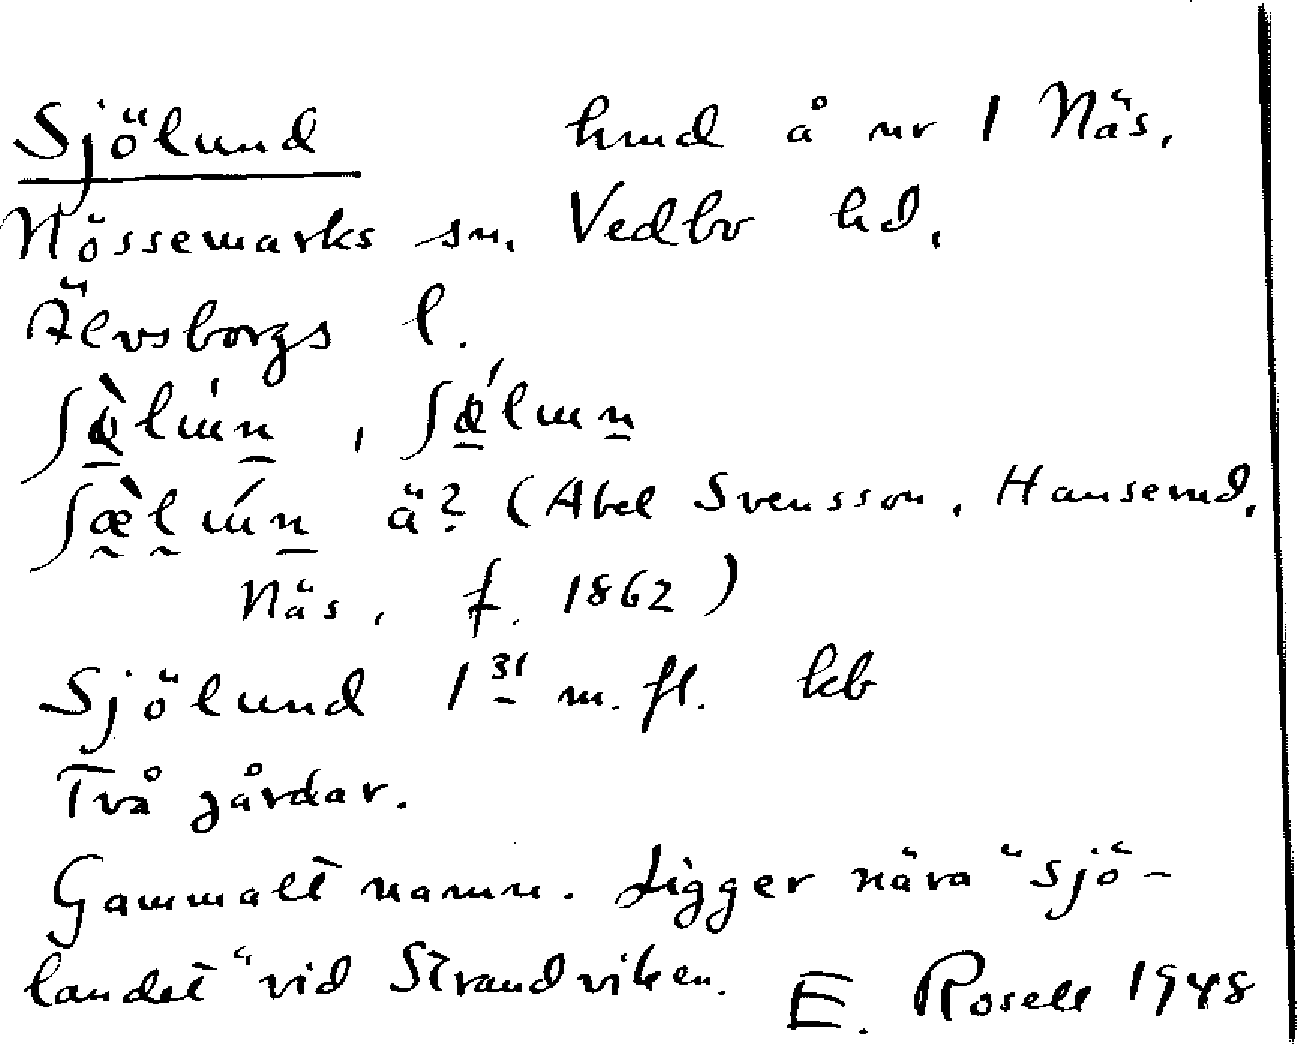 Sjölund hmd å nr 1 Näs,
Nössemarks sn, Vedbo hd,
Älvsborgs l.
ʃæ̀lún, ʃǽlun
ʃæ̀lún ä? (Abel Svensson, Hanserud,
Näs, f. 1862)
Sjölund 1 31 m. fl. kb
Två gårdar.
Gammalt namn. Ligger nära "sjö-
landet" vid Strandviken. E. Rosell 1948